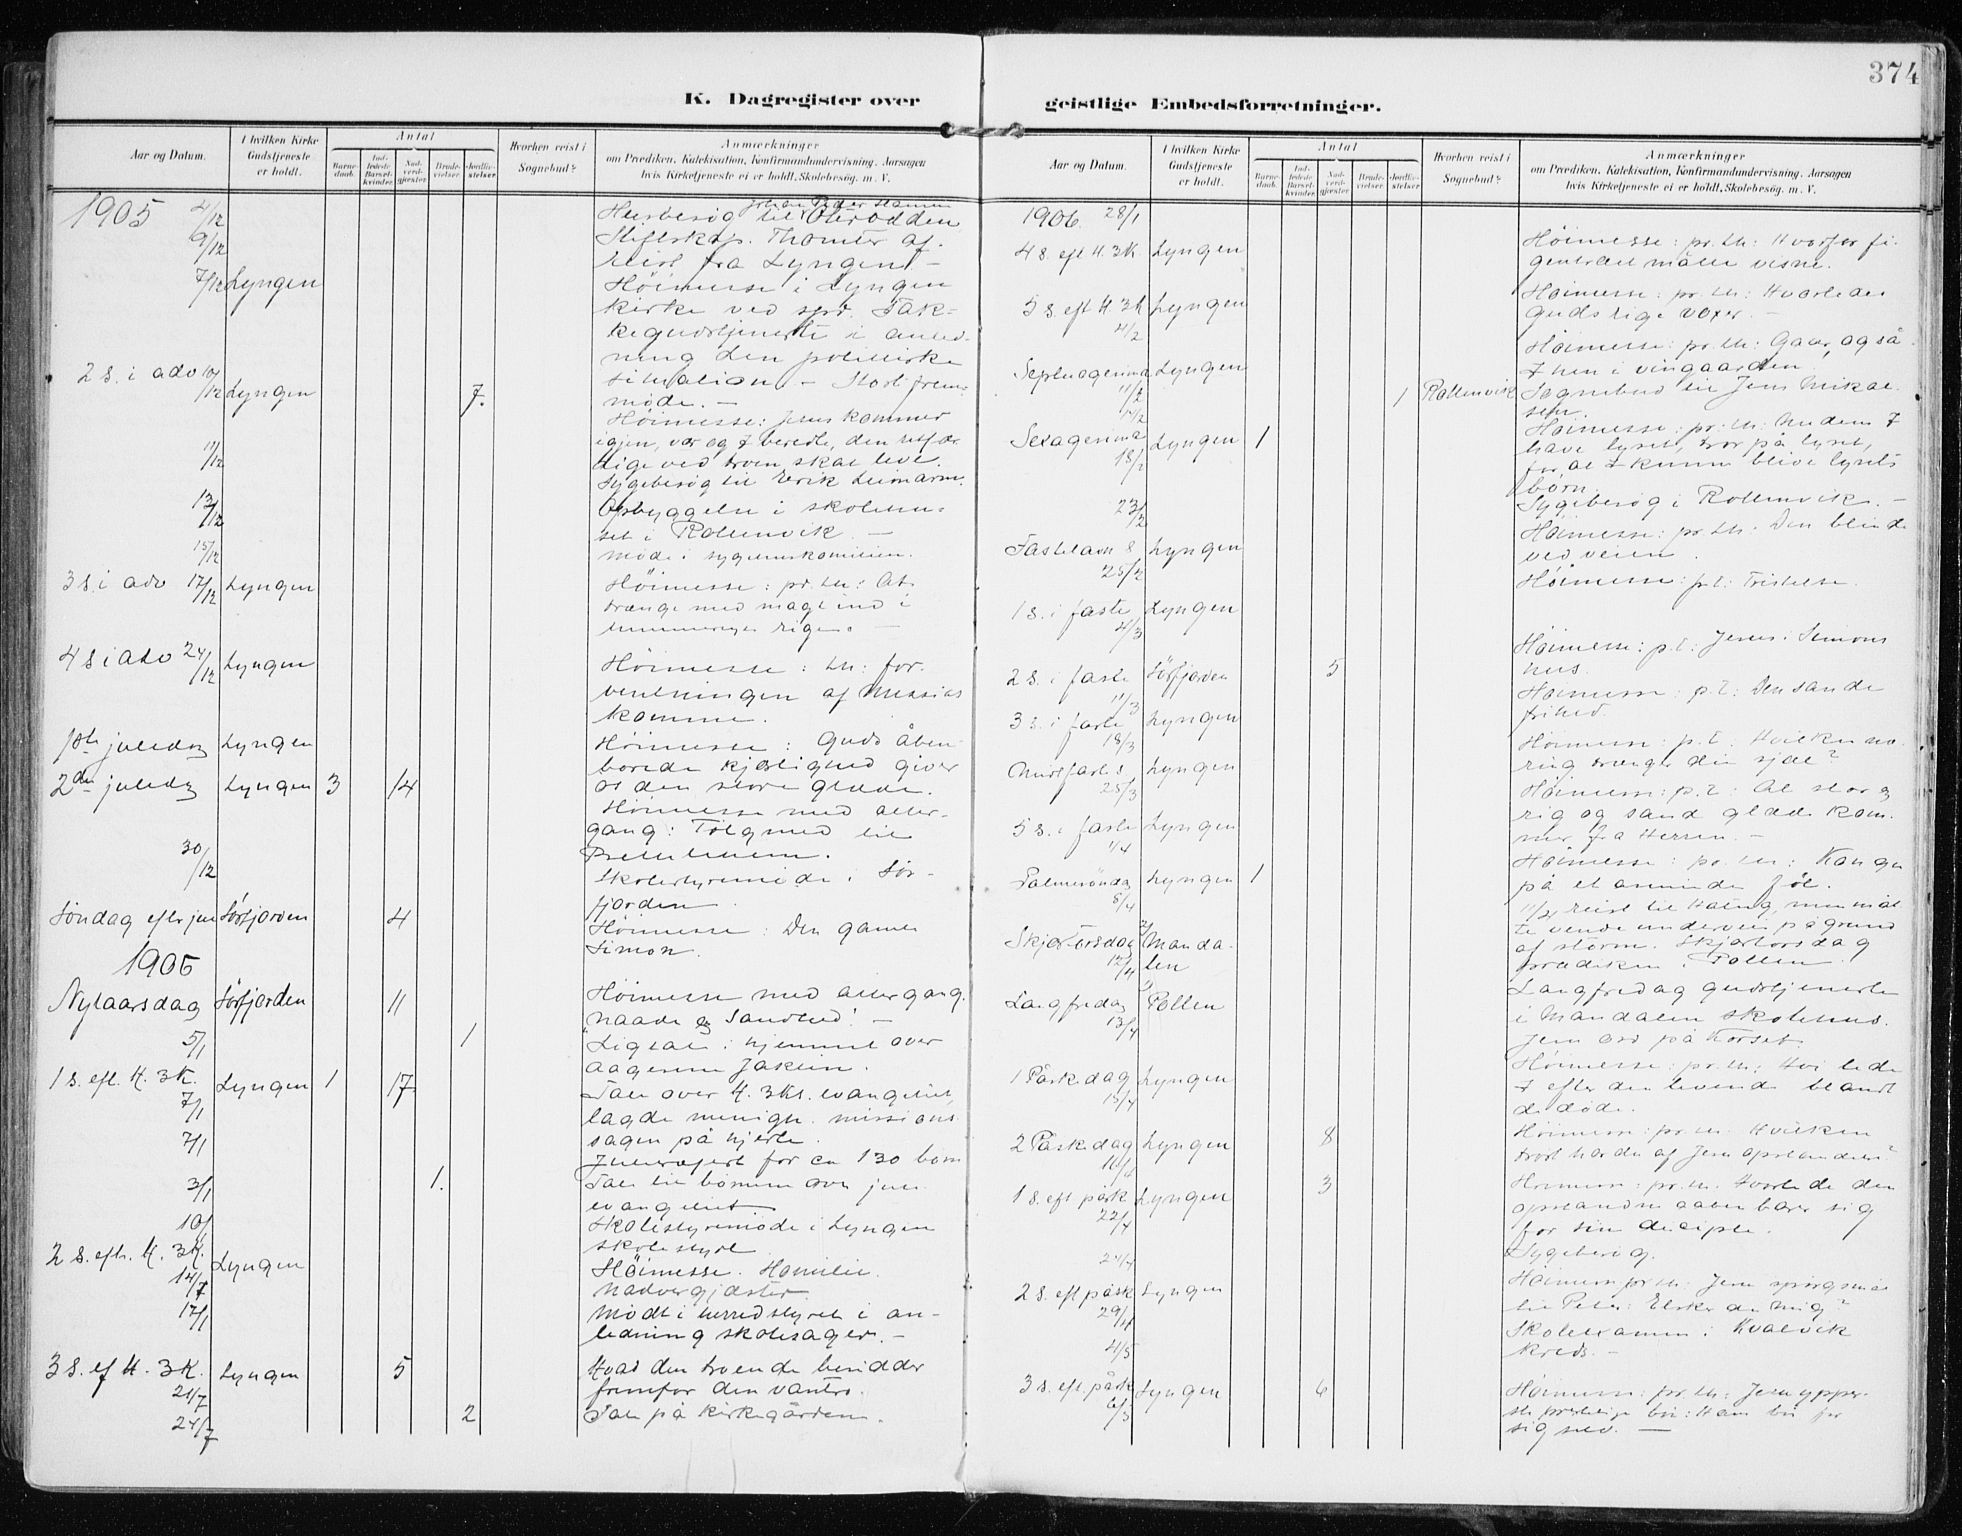 374
K. Dagregister over geistlige Embedsforretninger.
Aar og Datum.
I hvilken Kirke Gudstjeneste er holdt.
Antal
Barnedaab.
Indledede Barselkvinder.
Nadverdgjester
Brudevielser.
Jordfæstelser
Hvorhen reist i Sognebud?
Anmærkninger
om Prædiken, Katekisation, Konfirmandundervisning, Aarsagen
hvis Kirketjeneste ei er holdt, Skolebesøg. m. V.
1905 4/12 Husbesøg til
9/12 Stiftskap. Thomter af-
reist fra Lyngen. —
7/12 Lyngen Höimesse i Lyngen
kirke ved spr. Tak-
kegudstjeneste i anled-
ning den politiske
situation. — Stort frem-
møde. —
2 s. i adv 10/12 Lyngen 7. Höimesse: Jesus kommer
igjen, vær og I beredte, den retfær
dige ved troen skal leve.
11/12 Sygebesøg til Erik
13/12 Opbyggelse i skolehu-
set i Rottenvik. —
15/12 Møde i sygehuskomiteen.
3 s. i adv 17/12 Lyngen Höimesse: pr. th: At
trænge med magt ind i
himmeriges rige. —
4 s i adv 24/12 Lyngen Höimesse: th: for-
ventningen af Messias
komme.
1ste juledag Lyngen Höimesse: Guds åben-
barede kjærlighed giver
os den store glæde.
2den juledag Lyngen 3 14 Höimesse med alter-
gang: Følg med til
Bethlehem.
30/12 Skolestyremøde i Sør-
fjorden.
Söndag efter jul Sørfjorden 4 Höimesse: Den gamle
Simon.
1906
Nytaarsdag Sørfjorden 11 Höimesse med altergang.
"Naade og Sandhed". —
5/1 1 Ligtale i hjemmet over
1 s. eft. H. 3 K. 7/1 Lyngen 1 17 Tale over H. 3 Ks. evangeliet,
lagde menigh. missions
sagen på hjerte.
7/1 Juletræfest for ca 130 börn
3/1 1. Tale til börnene over jule
evangeliet
10/1 Skolestyremöde i Lyngen
skolestyre
2 s. efter H. 3 K. 14/1 Lyngen Höimesse. Homilie.
Nadvergjæster
17/1 Mödt i herredstyret i an-
ledning skolesager. —
3 s. ef H. 3 K. 21/1 Lyngen 5 Hvad den troende besidder
fremfor den vantro.
24/1 2 Tale på kirkegården.
Aar og Datum.
I hvilken Kirke Gudstjeneste er holdt.
Antal
Barnedaab.
Indledede Barselkvinder.
Nadverdgjester
Brudevielser.
Jordfæstelser
Hvorhen reist i Sognebud?
Anmærkninger
om Prædiken, Katekisation, Konfirmandundervisning, Aarsagen
hvis Kirketjeneste ei er holdt, Skolebesøg. m. V.
1906 28/1
4 s. eft H. 3 K. Lyngen Höimesse: pr. th: Hvorfor fi-
gentræet måtte visne.
5 s. eft H. 3 K 4/2 Lyngen Höimesse: pr. th: Hvorledes
Guds rige voxer. —
Septuagesima 11/2 Lyngen Höimesse: pr. th: Gaar også
I hen i vingaarden
1 Rottenvik Sognebud til Jens Mikal-
sen.
Sexagesima 18/2 Lyngen 1 Höimesse: pr. th: Medens I
have lyset, tror på lyset,
for at I kunne blive lysets
børn.
23/2 Sygebesøg i Rottenvik. —
Fastelavn s 25/2 Lyngen Höimesse: pr. th: Den blinde
ved veien.
1 s. i faste 4/3 Lyngen Höimesse: p.t: Fristelse.
2 s. i faste 11/3 Sørfjorden 5 Höimesse: p.t: Jesus i Simons
hus.
3 s. i faste 18/3 Lyngen Höimesse: p.t: Den sande
frihed.
Midtfaste s 25/3 Lyngen Höimesse: p.t: Hvilken næ-
ring trænger din sjæl?
5 s. i faste 1/4 Lyngen Höimesse: p.t: At stor og
rig og sand glæde kom-
mer fra Herren. —
Palmesöndag 8/4 Lyngen 1 Höimesse: pr. th: Kongen
på et aseninde føl.
11/4 reist til men måt
te vende underveis på grund
af storm. Skjærtorsdag
prædiken i Pollen.
Skjærtorsdag 12/4 Manda-
len
Langfredag 13/4 Pollen Langfredag gudstjeneste
i Mandalen skolehus.
Jesu ord på Korset.
1 Påskedag 15/4 Lyngen Höimesse: pr. th: Hvi lede
I efter den levende blandt
de døde.
2 Påskedag 16/4 Lyngen 8 Höimesse: pr. th. Hvilken
trøst har du af Jesu opstandelse?
1 s. eft påsk 22/4 Lyngen 3 Höimesse: pr. th. Hvorlede den
opstandne aabenbarer sig
for sin disciple.
24/4 Sygebesøg.
2 s. eft påsk 29/4 Lyngen Höimesse pr. th: Jesu spörgsmål
til Peter: Elsker du Mig?
4/5 Skoleexamen i Kvalvik
kreds. —
3 s. eft. påsk 6/5 Lyngen 6 Höimesse: pr. th: Jesu ypper-
ste prestelige bön: Ham bö for
sig selv. —